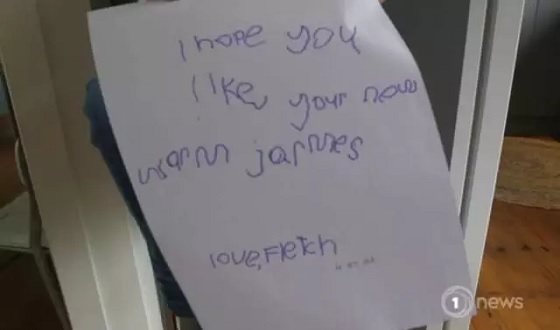 I hope you
like your new
warm jarmes
love, Fletch
1 news